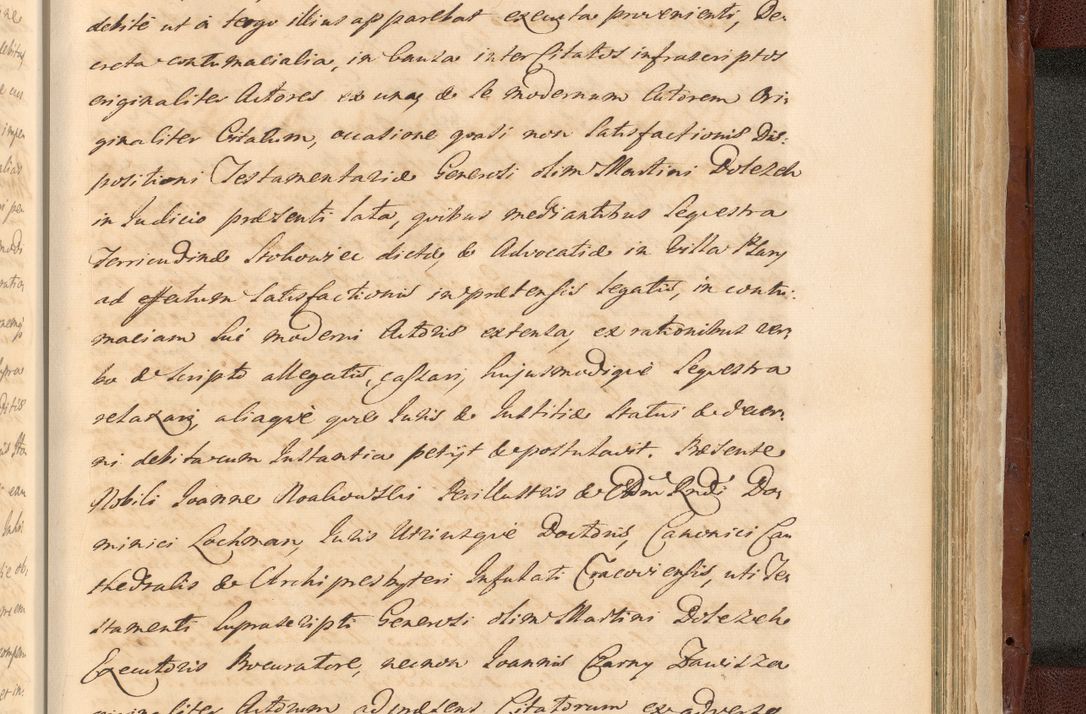 debite ut a tergo illius apparebat executa provenienti, De,
creta contumacialia, in Causa inter Citatos infrascriptos
originaliter Actores ex una, & se modernum Actorem Ori,
ginaliter Citatum, occasione quasi non Satisfactionis Dis,
positioni Testamentariæ Generosi olim Martini Dolezeh
in Judicio præsenti lata, quibus mediantibus Sequestra
Terricudinæ Stohowiec dictæ, & Advocatiæ in Villa
ad effectum Satisfactionis in prætensis legatis, in contu,
maciam sui moderni Actoris extensa, ex rationibus ver,
bo & Scripto allegatis, cassari, hujusmodique Sequestra
relaxari, aliaque quæ Juris & Justitiæ Statui & decer,
ni debita cum Instantia petijt & postulavit. Præsente
Nobili Joanne Perillustris & Rndi Do,
minici Lochman, Juris Utriusque Doctoris, Canonici Ca
thedralis & Archipresbyteri Infulati Cracoviensis, uti Te,
stamenti Suprascripti Generosi olim Martini Dolezeh
Executoris Procuratore, necnon Joannis Czarny Dawisza
originaliter Actorum ad præsens Citatorum ex adverso